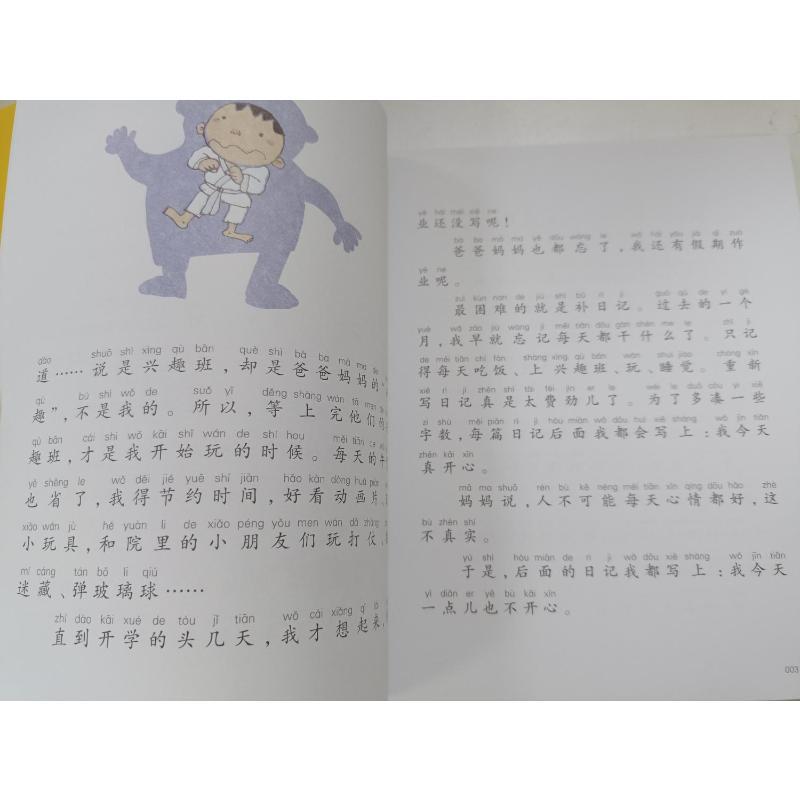 dào shuō shì xìng qù bān què shì bà ba mā ma
道……说是兴趣班，却是爸爸妈妈的“
qù bú shì wǒ de suǒ yǐ děng shàng wán tā men
趣”，不是我的。所以，等上完他们的
qù bān cái shì wǒ kāi shǐ wán de shí hou měi tiān
趣班，才是我开始玩的时候。每天的午
yě shěng le wǒ děi jié yuē shí jiān hǎo kàn dòng huà piàn
也省了，我得节约时间，好看动画片、
xiǎo wán jù hé yuàn li de xiǎo péng yǒu men wán dǎ zhàng
小玩具，和院里的小朋友们玩打仗、
mí cáng tán bō li qiú
迷藏、弹玻璃球……
zhí dào kāi xué de tóu jǐ tiān wǒ cái xiǎng qǐ
直到开学的头几天，我才想起来，
yè hái méi xiě ne
业还没写呢！
bà ba mā ma yě dōu wàng le wǒ hái yǒu jià qī zuò
爸爸妈妈也都忘了，我还有假期作
yè ne
业呢。
zuì kùn nan de jiù shì bǔ rì jì guò qù de yí gè
最困难的就是补日记。过去的一个
yuè wǒ zǎo jiù wàng jì měi tiān dōu gàn shén me le zhǐ jì
月，我早就忘记每天都干什么了。只记
de měi tiān chī fàn shàng xìng qù bān wán shuì jiào chóng xīn
得每天吃饭、上兴趣班、玩、睡觉。重新
xiě rì jì zhēn shi tài fèi jìn er le wèi le duō còu yì xiē
写日记真是太费劲儿了。为了多凑一些
zì shù měi piān rì jì hòu miàn wǒ dōu huì xiě shàng wǒ jīn tiān
字数，每篇日记后面我都会写上：我今天
zhēn kāi xīn
真开心。
mā ma shuō rén bù kě néng měi tiān xīn qíng dōu hǎo zhè
妈妈说，人不可能每天心情都好，这
bù zhēn shí
不真实。
yú shì hòu miàn de rì jì wǒ dōu xiě shàng wǒ jīn tiān
于是，后面的日记我都写上：我今天
yì diǎn er yě bù kāi xīn
一点儿也不开心。
003